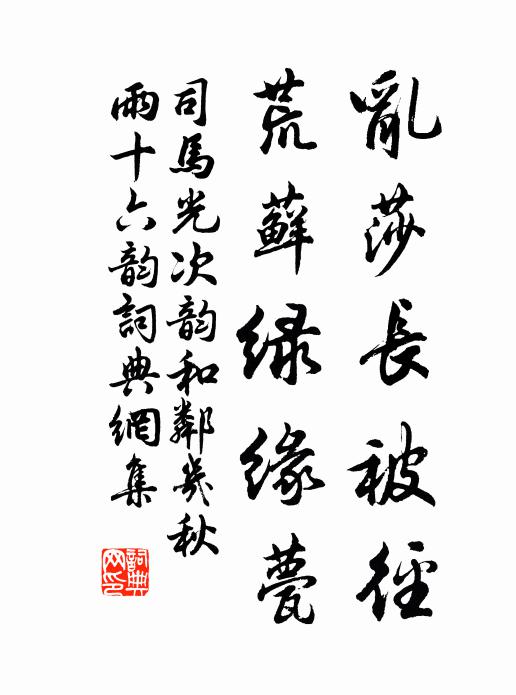 亂莎長被徑
荒蘚緑緣甍
司馬光次韵和鄰幾秋
雨十六韵詞典網集
詞典
网印